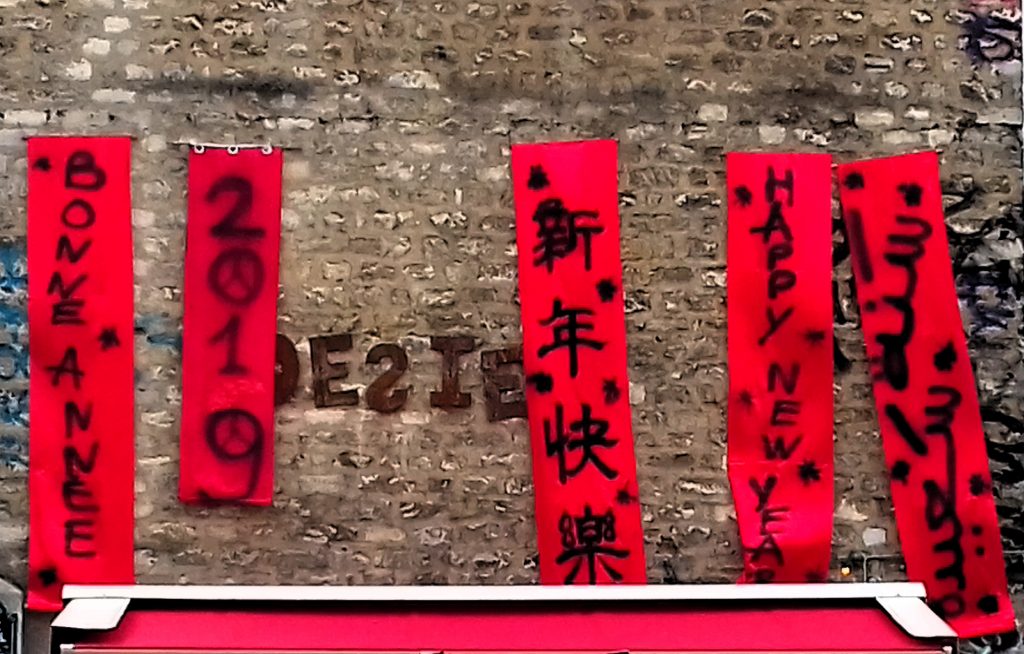 BONNE ANNEE
2019
DESIE
新年快樂
HAPPY NEW YEAR